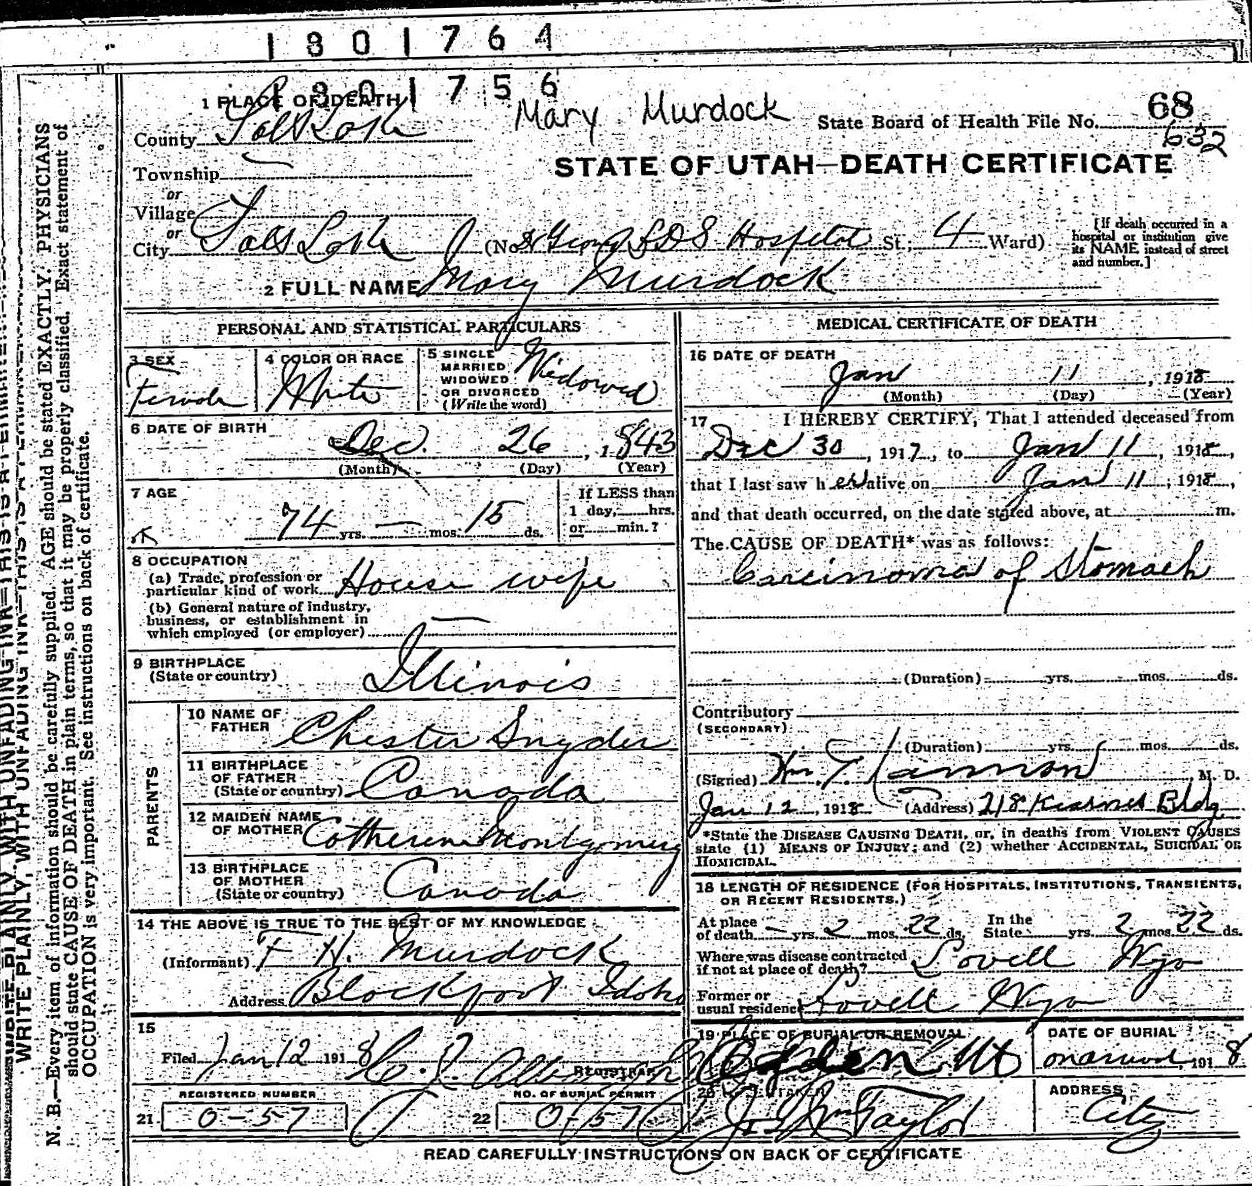 1801764
1801756
Mary Murdock
1 PLACE OF DEATH
State Board of Health File No. 68
632
County Salt Lake
STATE OF UTAH—DEATH CERTIFICATE
Township
or
Village
or
City Salt Lake (No. LDS Hospital St.; 4 Ward)
[If death occurred in a hospital or institution give its NAME instead of street and number.]
2 FULL NAME Mary Murdock
PERSONAL AND STATISTICAL PARTICULARS
3 SEX Female
4 COLOR OR RACE White
5 SINGLE MARRIED WIDOWED OR DIVORCED (Write the word) Widowed
6 DATE OF BIRTH Dec. 26, 1843
(Month) (Day) (Year)
7 AGE 74 yrs. — mos. 15 ds.
If LESS than 1 day, hrs. or min.?
8 OCCUPATION
(a) Trade, profession or particular kind of work House wife
(b) General nature of industry, business, or establishment in which employed (or employer) —
9 BIRTHPLACE (State or country) Illinois
PARENTS
10 NAME OF FATHER Chester Snyder
11 BIRTHPLACE OF FATHER (State or country) Canada
12 MAIDEN NAME OF MOTHER Catherine Montgomery
13 BIRTHPLACE OF MOTHER (State or country) Canada
14 THE ABOVE IS TRUE TO THE BEST OF MY KNOWLEDGE
(Informant) F H. Murdock
Address Blackfoot Idaho
15
Filed Jan 12 1918
REGISTRAR
REGISTERED NUMBER
21 0-57
NO. OF BURIAL PERMIT
22 0/57
MEDICAL CERTIFICATE OF DEATH
16 DATE OF DEATH
Jan 11, 1918
(Month) (Day) (Year)
17 I HEREBY CERTIFY, That I attended deceased from
Dec 30, 1917, to Jan 11, 1918,
that I last saw her alive on Jan 11, 1918,
and that death occurred, on the date stated above, at m.
The CAUSE OF DEATH* was as follows:
Carcinoma of Stomach
(Duration) yrs. mos. ds.
Contributory
(SECONDARY)
(Duration) yrs. mos. ds.
(Signed) Wm. T. Cannon, M. D.
Jan 12, 1918 (Address) 218 Kearns Bldg
*State the DISEASE CAUSING DEATH, or, in deaths from VIOLENT CAUSES
state (1) MEANS OF INJURY; and (2) whether ACCIDENTAL, SUICIDAL OR
HOMICIDAL.
18 LENGTH OF RESIDENCE (FOR HOSPITALS, INSTITUTIONS, TRANSIENTS,
OR RECENT RESIDENTS.)
At place of death — yrs. 2 mos. 22 ds. In the State yrs. 2 mos. 22 ds.
Where was disease contracted if not at place of death? Lovell Wyo
Former or usual residence Lovell Wyo
19 PLACE OF BURIAL OR REMOVAL Ogden Ut
DATE OF BURIAL 1918
20 UNDERTAKER Taylor
ADDRESS City
READ CAREFULLY INSTRUCTIONS ON BACK OF CERTIFICATE
WRITE PLAINLY, WITH UNFADING INK—THIS IS A PERMANENT
N. B.—Every item of information should be carefully supplied. AGE should be stated EXACTLY. PHYSICIANS
should state CAUSE OF DEATH in plain terms, so that it may be properly classified. Exact statement of
OCCUPATION is very important. See instructions on back of certificate.